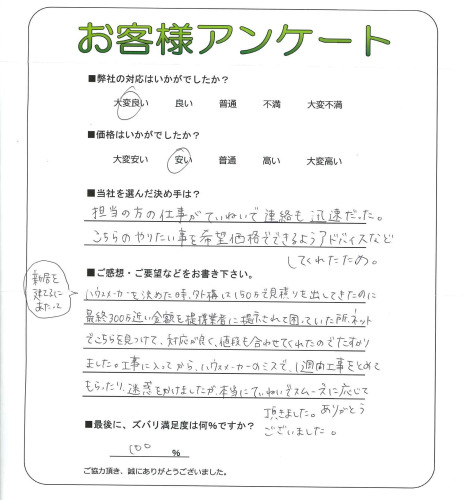 お客様アンケート
■弊社の対応はいかがでしたか?
大変良い 良い 普通 不満 大変不満
■価格はいかがでしたか?
大変安い 安い 普通 高い 大変高い
■当社を選んだ決め手は?
担当の方の仕事がていねいで連絡も迅速だった。
こちらのやりたい事を希望価格でできるようアドバイスなど
してくれたため。
■ご感想・ご要望などをお書き下さい。
新居を
建てるに
あたって
ハウスメーカーを決めた時、外構は150万で見積りを出してきたのに
最終300万近い金額を提携業者に提示されて困っていた所、ネット
でこちらを見つけて、対応が良く、値段も合わせてくれたのでたすかり
ました。工事に入ってから、ハウスメーカーのミスで、1週間工事をとめて
もらったり、迷惑をかけましたが、本当にていねいでスムーズに応じて
頂きました。ありがとう
ございました。
■最後に、ズバリ満足度は何%ですか?
100 %
ご協力頂き、誠にありがとうございました。